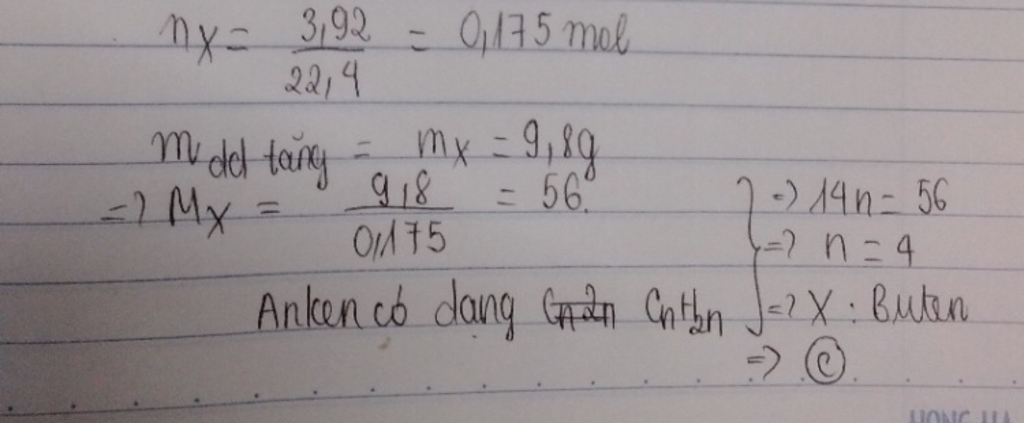 nX = 3,92 / 22,4 = 0,175 mol
m dd tăng = mX = 9,8g
=> MX = 9,8 / 0,175 = 56.
Anken có dạng CnH2n
=> 14n = 56
=> n = 4
=> X : Buten
=> C